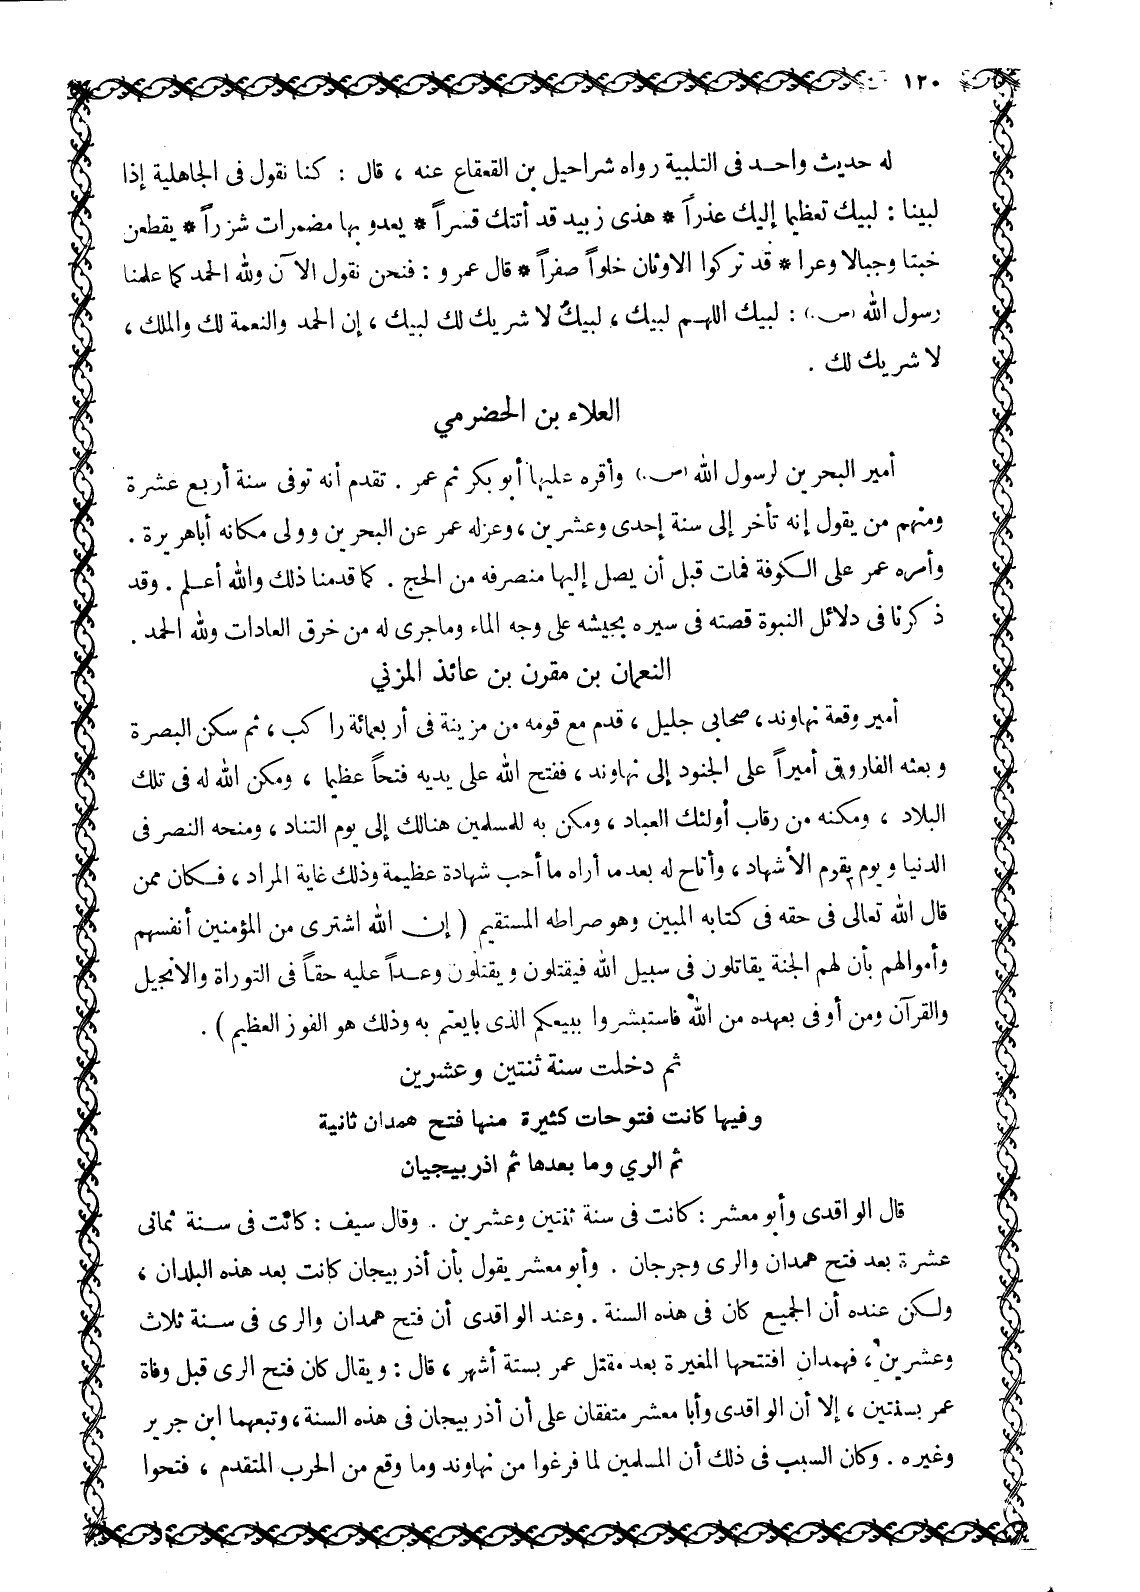 ١٢٠
له حديث واحد فى التلبية رواه شراحيل بن القعقاع عنه ، قال : كنا نقول فى الجاهلية إذا
لبينا : لبيك تعظيما إليك عذراً * هذى زبيد قد أتتك قسراً * يعدو بها مضمرات شزراً * يقطعن
خبتا وجبالا وعرا * قد تركوا الاوثان خلواً صفراً * قال عمرو : فنحن نقول الآن ولله الحمد كما علمنا
رسول الله (ص.) : لبيك اللهم لبيك ، لبيك لا شريك لك لبيك ، إن الحمد والنعمة لك والملك ،
لا شريك لك .
العلاء بن الحضرمي
أمير البحرين لرسول الله (ص.) وأقره عليها أبو بكر ثم عمر . تقدم أنه توفى سنة أربع عشرة
ومنهم من يقول إنه تأخر إلى سنة إحدى وعشرين ، وعزله عمر عن البحرين وولى مكانه أباهريرة .
وأمره عمر على الكوفة فمات قبل أن يصل إليها منصرفه من الحج . كما قدمنا ذلك والله أعلم . وقد
ذكرنا فى دلائل النبوة قصته فى سيره بجيشه على وجه الماء وماجرى له من خرق العادات ولله الحمد .
النعمان بن مقرن بن عائذ المزني
أمير وقعة نهاوند ، صحابى جليل ، قدم مع قومه من مزينة فى أربعمائة راكب ، ثم سكن البصرة
وبعثه الفاروق أميراً على الجنود إلى نهاوند ، ففتح الله على يديه فتحاً عظيما ، ومكن الله له فى تلك
البلاد ، ومكنه من رقاب أولئك العباد ، ومكن به للمسلمين هنالك إلى يوم التناد ، ومنحه النصر فى
الدنيا ويوم يقوم الأشهاد ، وأتاح له بعدما أراه ما أحب شهادة عظيمة وذلك غاية المراد ، فكان ممن
قال الله تعالى فى حقه فى كتابه المبين وهو صراطه المستقيم ( إن الله اشترى من المؤمنين أنفسهم
وأموالهم بأن لهم الجنة يقاتلون فى سبيل الله فيقتلون ويقتلون وعداً عليه حقاً فى التوراة والانجيل
والقرآن ومن أوفى بعهده من الله فاستبشروا ببيعكم الذى بايعتم به وذلك هو الفوز العظيم ) .
ثم دخلت سنة ثنتين وعشرين
وفيها كانت فتوحات كثيرة منها فتح همدان ثانية
ثم الري وما بعدها ثم اذربيجيان
قال الواقدى وأبو معشر : كانت فى سنة ثنتين وعشرين . وقال سيف : كانت فى سنة ثمانى
عشرة بعد فتح همدان والرى وجرجان . وأبو معشر يقول بأن أذربيجان كانت بعد هذه البلدان ،
ولكن عنده أن الجميع كان فى هذه السنة . وعند الواقدى أن فتح همدان والرى فى سنة ثلاث
وعشرين ، فهمدان افتتحها المغيرة بعد مقتل عمر بستة أشهر ، قال : ويقال كان فتح الرى قبل وفاة
عمر بسنتين ، إلا أن الواقدى وأبا معشر متفقان على أن أذربيجان فى هذه السنة ، وتبعهما ابن جرير
وغيره . وكان السبب فى ذلك أن المسلمين لما فرغوا من نهاوند وما وقع من الحرب المتقدم ، فتحوا